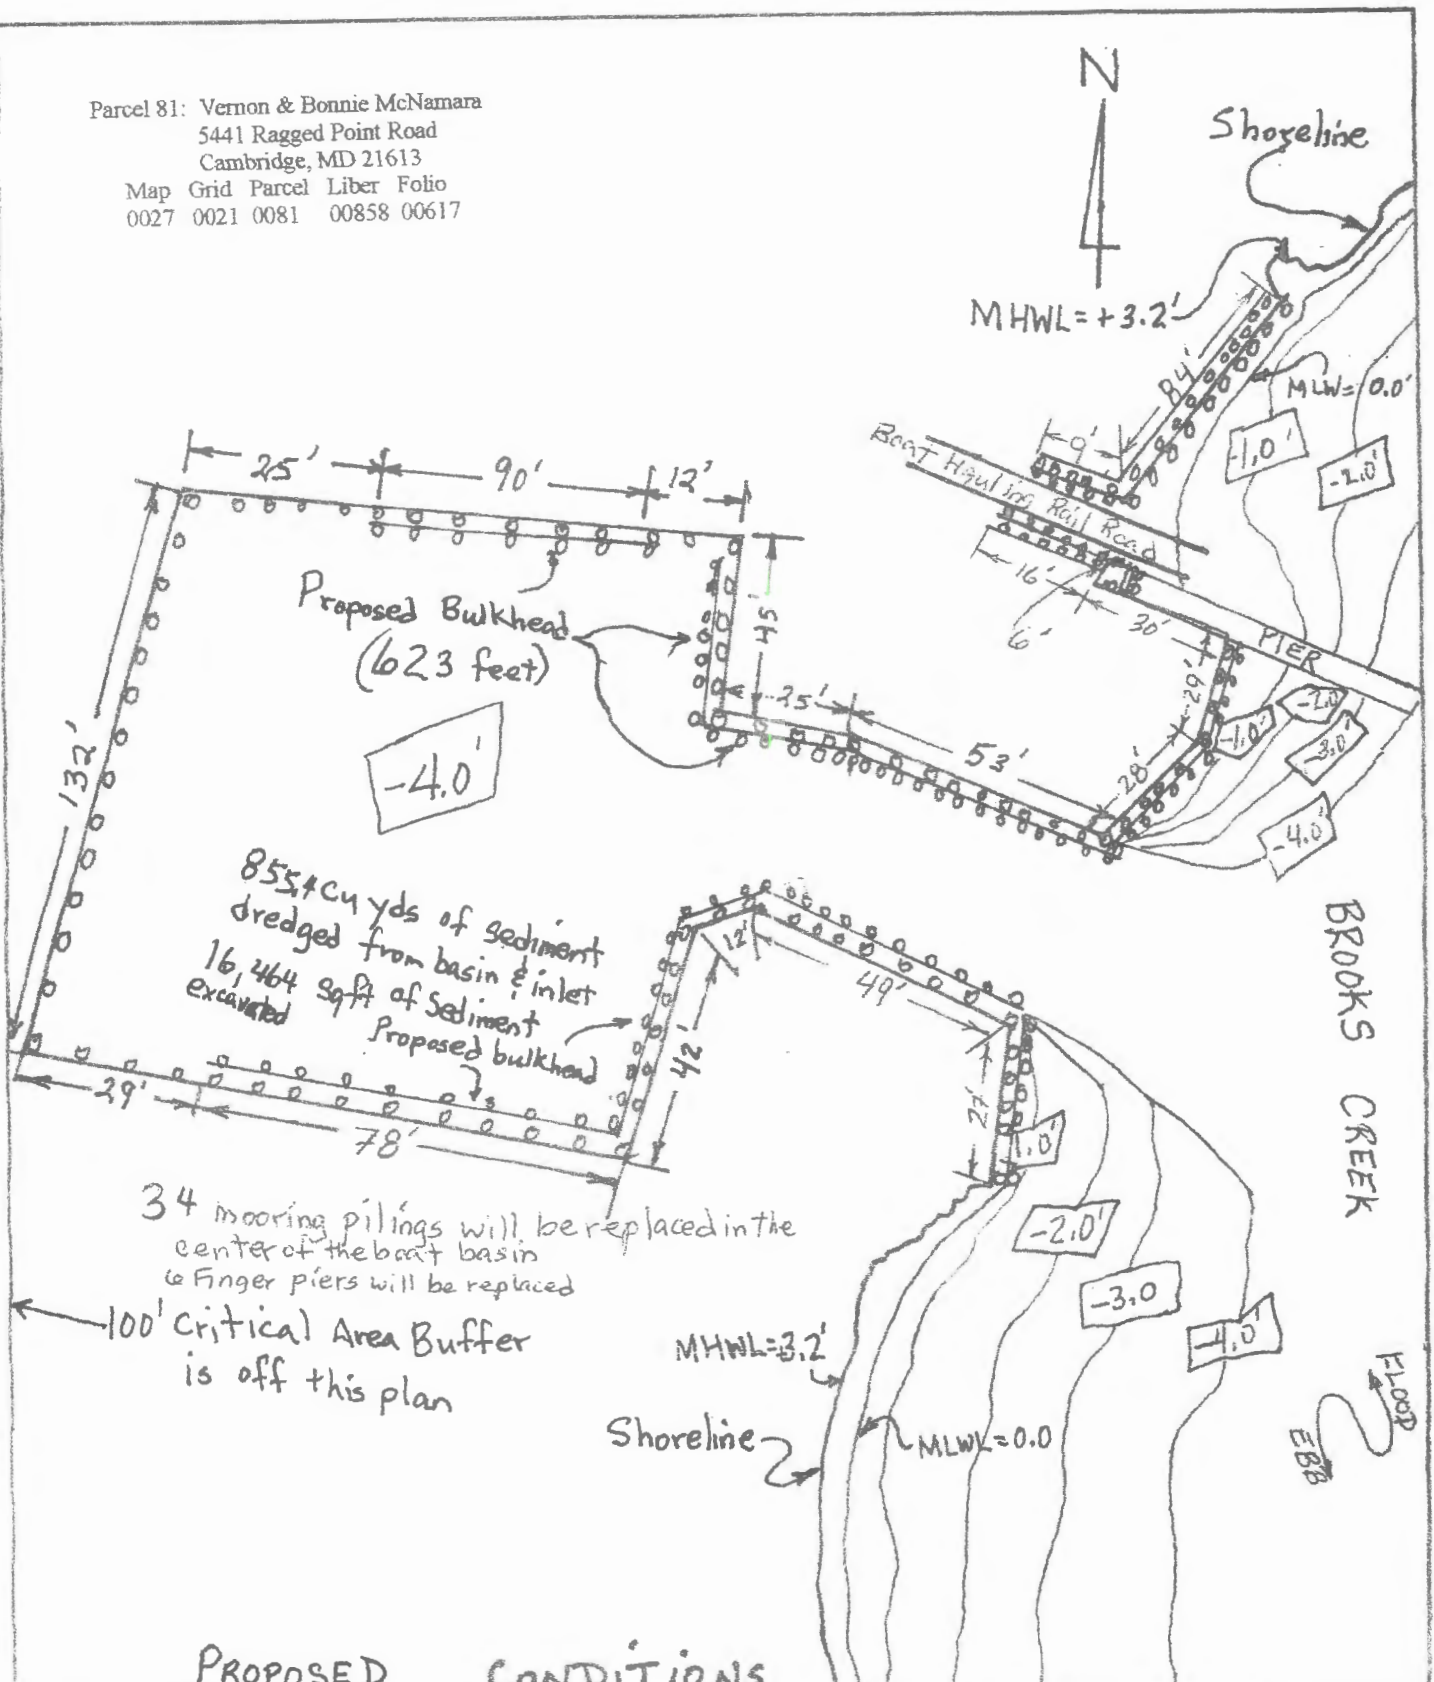 Parcel 81: Vernon & Bonnie McNamara
5441 Ragged Point Road
Cambridge, MD 21613
Map Grid Parcel Liber Folio
0027 0021 0081 00858 00617
N
Shoreline
MHWL=+3.2'
84'
MLW=0.0'
-1.0'
-2.0'
9'
Boat Hauling Rail Road
16'
6'
30'
PIER
29'
28'
-1.0'
-2.0'
-3.0'
-4.0'
25'
90'
12'
45'
Proposed Bulkhead
(623 feet)
25'
53'
132'
-4.0'
855.4 Cu yds of sediment
dredged from basin & inlet
16,464 Sqft of Sediment
excavated
Proposed bulkhead
12'
49'
42'
27'
29'
78'
BROOKS CREEK
1.0'
-2.0'
-3.0
-4.0'
34 mooring pilings will be replaced in the
center of the boat basin
6 Finger piers will be replaced
100' Critical Area Buffer
is off this plan
MHWL=3.2'
Shoreline
MLWL=0.0
FLOOD
EBB
PROPOSED CONDITIONS